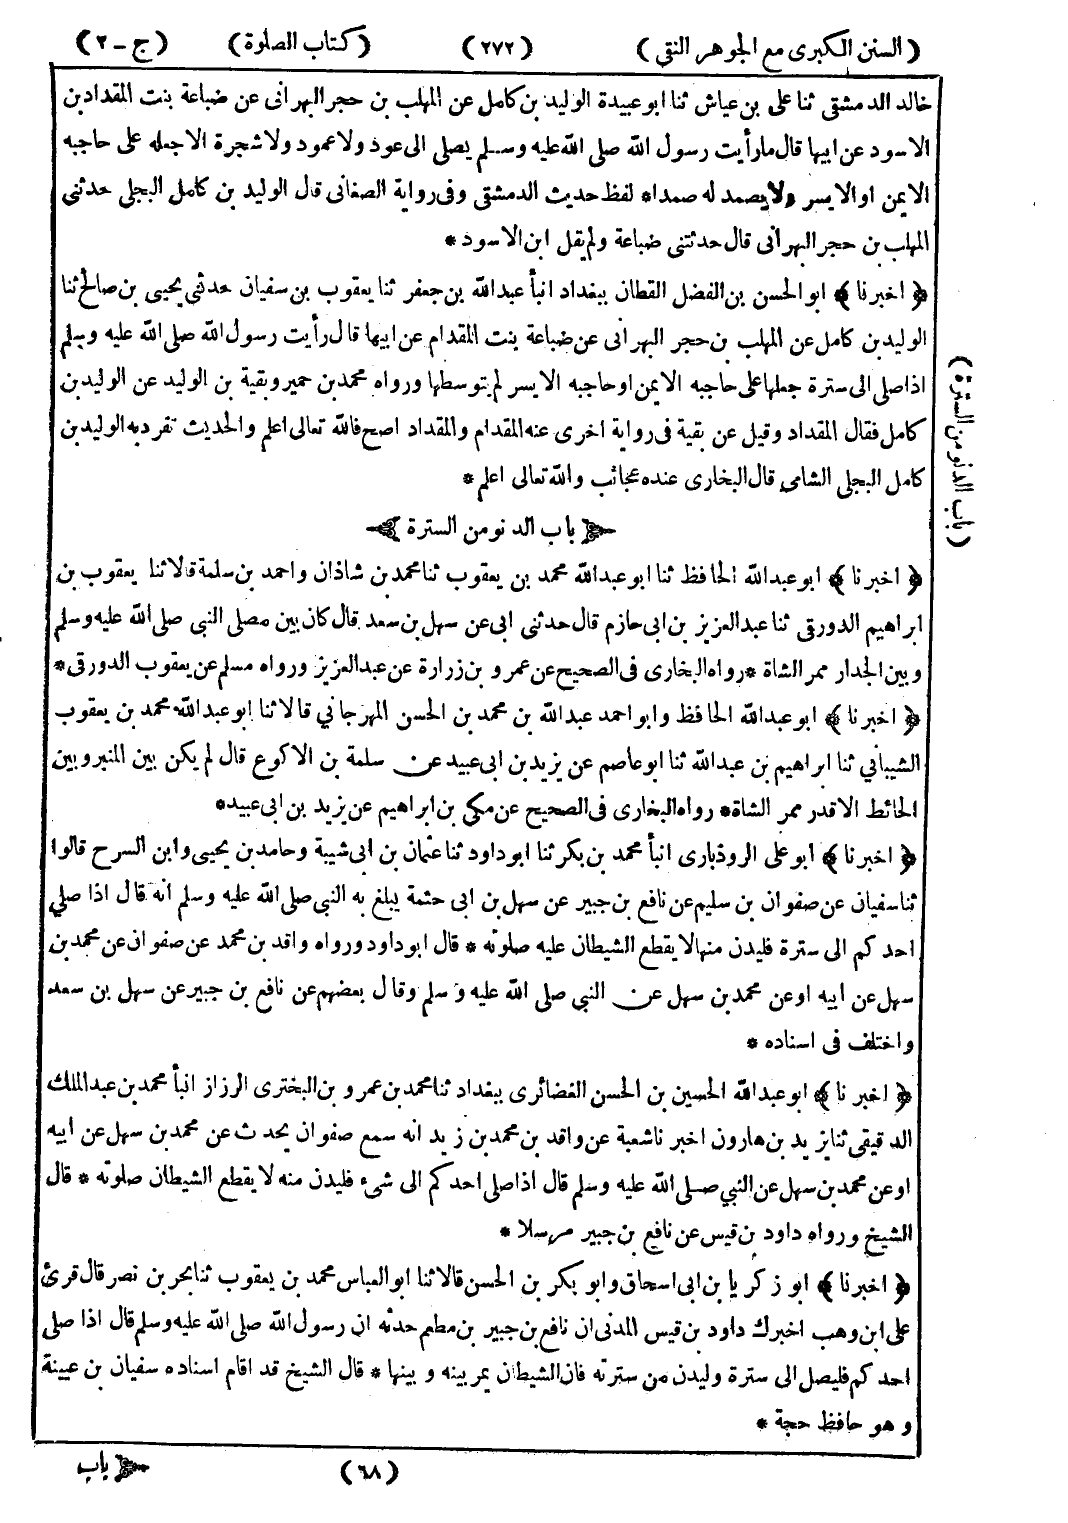 (السنن الكبرى مع الجوهر النقى) (٢٧٢) (كتاب الصلوة) (ج - ٢)
خالد الدمشقى ثنا على بن عياش ثنا ابو عبيدة الوليد بن كامل عن المهلب بن حجر البهرانى عن ضباعة بنت المقداد بن
الاسود عن ابيها قال ما رأيت رسول الله صلى الله عليه وسلم يصلى الى عود ولا عمود ولا شجرة الا جعله على حاجبه
الايمن او الايسر ولا يصمد له صمدا * لفظ حديث الدمشقى وفى رواية الصغانى قال الوليد بن كامل البجلى حدثنى
المهلب بن حجر البهرانى قال حدثتنى ضباعة ولم يقل ابن الاسود *
﴿ اخبرنا ﴾ ابو الحسن بن الفضل القطان ببغداد انبأ عبدالله بن جعفر ثنا يعقوب بن سفيان حدثنى يحيى بن صالح ثنا
الوليد بن كامل عن المهلب بن حجر البهرانى عن ضباعة بنت المقدام عن ابيها قال رأيت رسول الله صلى الله عليه وسلم
اذا صلى الى سترة جعلها على حاجبه الايمن او حاجبه الايسر لم يتوسطها ورواه محمد بن حمير وبقية بن الوليد عن الوليد بن
كامل فقال المقداد وقيل عن بقية فى رواية اخرى عنه المقدام والمقداد اصح فالله تعالى اعلم والحديث تفرد به الوليد بن
كامل البجلى الشامى قال البخارى عنده عجائب والله تعالى اعلم *
باب الدنو من السترة
﴿ اخبرنا ﴾ ابو عبدالله الحافظ ثنا ابو عبدالله محمد بن يعقوب ثنا محمد بن شاذان واحمد بن سلمة قالا ثنا يعقوب بن
ابراهيم الدورقى ثنا عبدالعزيز بن ابى حازم قال حدثنى ابى عن سهل بن سعد قال كان بين مصلى النبى صلى الله عليه وسلم
وبين الجدار ممر الشاة * رواه البخارى فى الصحيح عن عمرو بن زرارة عن عبدالعزيز ورواه مسلم عن يعقوب الدورقى *
﴿ اخبرنا ﴾ ابو عبدالله الحافظ وابو احمد عبدالله بن محمد بن الحسن المهرجانى قالا ثنا ابو عبدالله محمد بن يعقوب
الشيبانى ثنا ابراهيم بن عبدالله ثنا ابو عاصم عن يزيد بن ابى عبيد عن سلمة بن الاكوع قال لم يكن بين المنبر وبين
الحائط الا قدر ممر الشاة * رواه البخارى فى الصحيح عن مكى بن ابراهيم عن يزيد بن ابى عبيد *
﴿ اخبرنا ﴾ ابو على الروذبارى انبأ محمد بن بكر ثنا ابو داود ثنا عثمان بن ابى شيبة وحامد بن يحيى وابن السرح قالوا
ثنا سفيان عن صفوان بن سليم عن نافع بن جبير عن سهل بن ابى حثمة يبلغ به النبى صلى الله عليه وسلم انه قال اذا صلى
احدكم الى سترة فليدن منها لا يقطع الشيطان عليه صلوته * قال ابو داود ورواه واقد بن محمد عن صفوان عن محمد بن
سهل عن ابيه او عن محمد بن سهل عن النبى صلى الله عليه وسلم وقال بعضهم عن نافع بن جبير عن سهل بن سعد
واختلف فى اسناده *
﴿ اخبرنا ﴾ ابو عبدالله الحسين بن الحسن الغضائرى ببغداد ثنا محمد بن عمرو بن البخترى الرزاز انبأ محمد بن عبدالملك
الدقيقى ثنا يزيد بن هارون اخبرنا شعبة عن واقد بن محمد بن زيد انه سمع صفوان يحدث عن محمد بن سهل عن ابيه
او عن محمد بن سهل عن النبى صلى الله عليه وسلم قال اذا صلى احدكم الى شىء فليدن منه لا يقطع الشيطان صلوته * قال
الشيخ ورواه داود بن قيس عن نافع بن جبير مرسلا *
﴿ اخبرنا ﴾ ابو زكريا بن ابى اسحاق وابو بكر بن الحسن قالا ثنا ابو العباس محمد بن يعقوب ثنا بحر بن نصر قال قرئ
على ابن وهب اخبرك داود بن قيس المدنى ان نافع بن جبير بن مطعم حدثه ان رسول الله صلى الله عليه وسلم قال اذا صلى
احدكم فليصل الى سترة وليدن من سترته فان الشيطان يمر بينه وبينها * قال الشيخ قد اقام اسناده سفيان بن عيينة
وهو حافظ حجة *
(باب الدنو من السترة)
(٦٨) باب